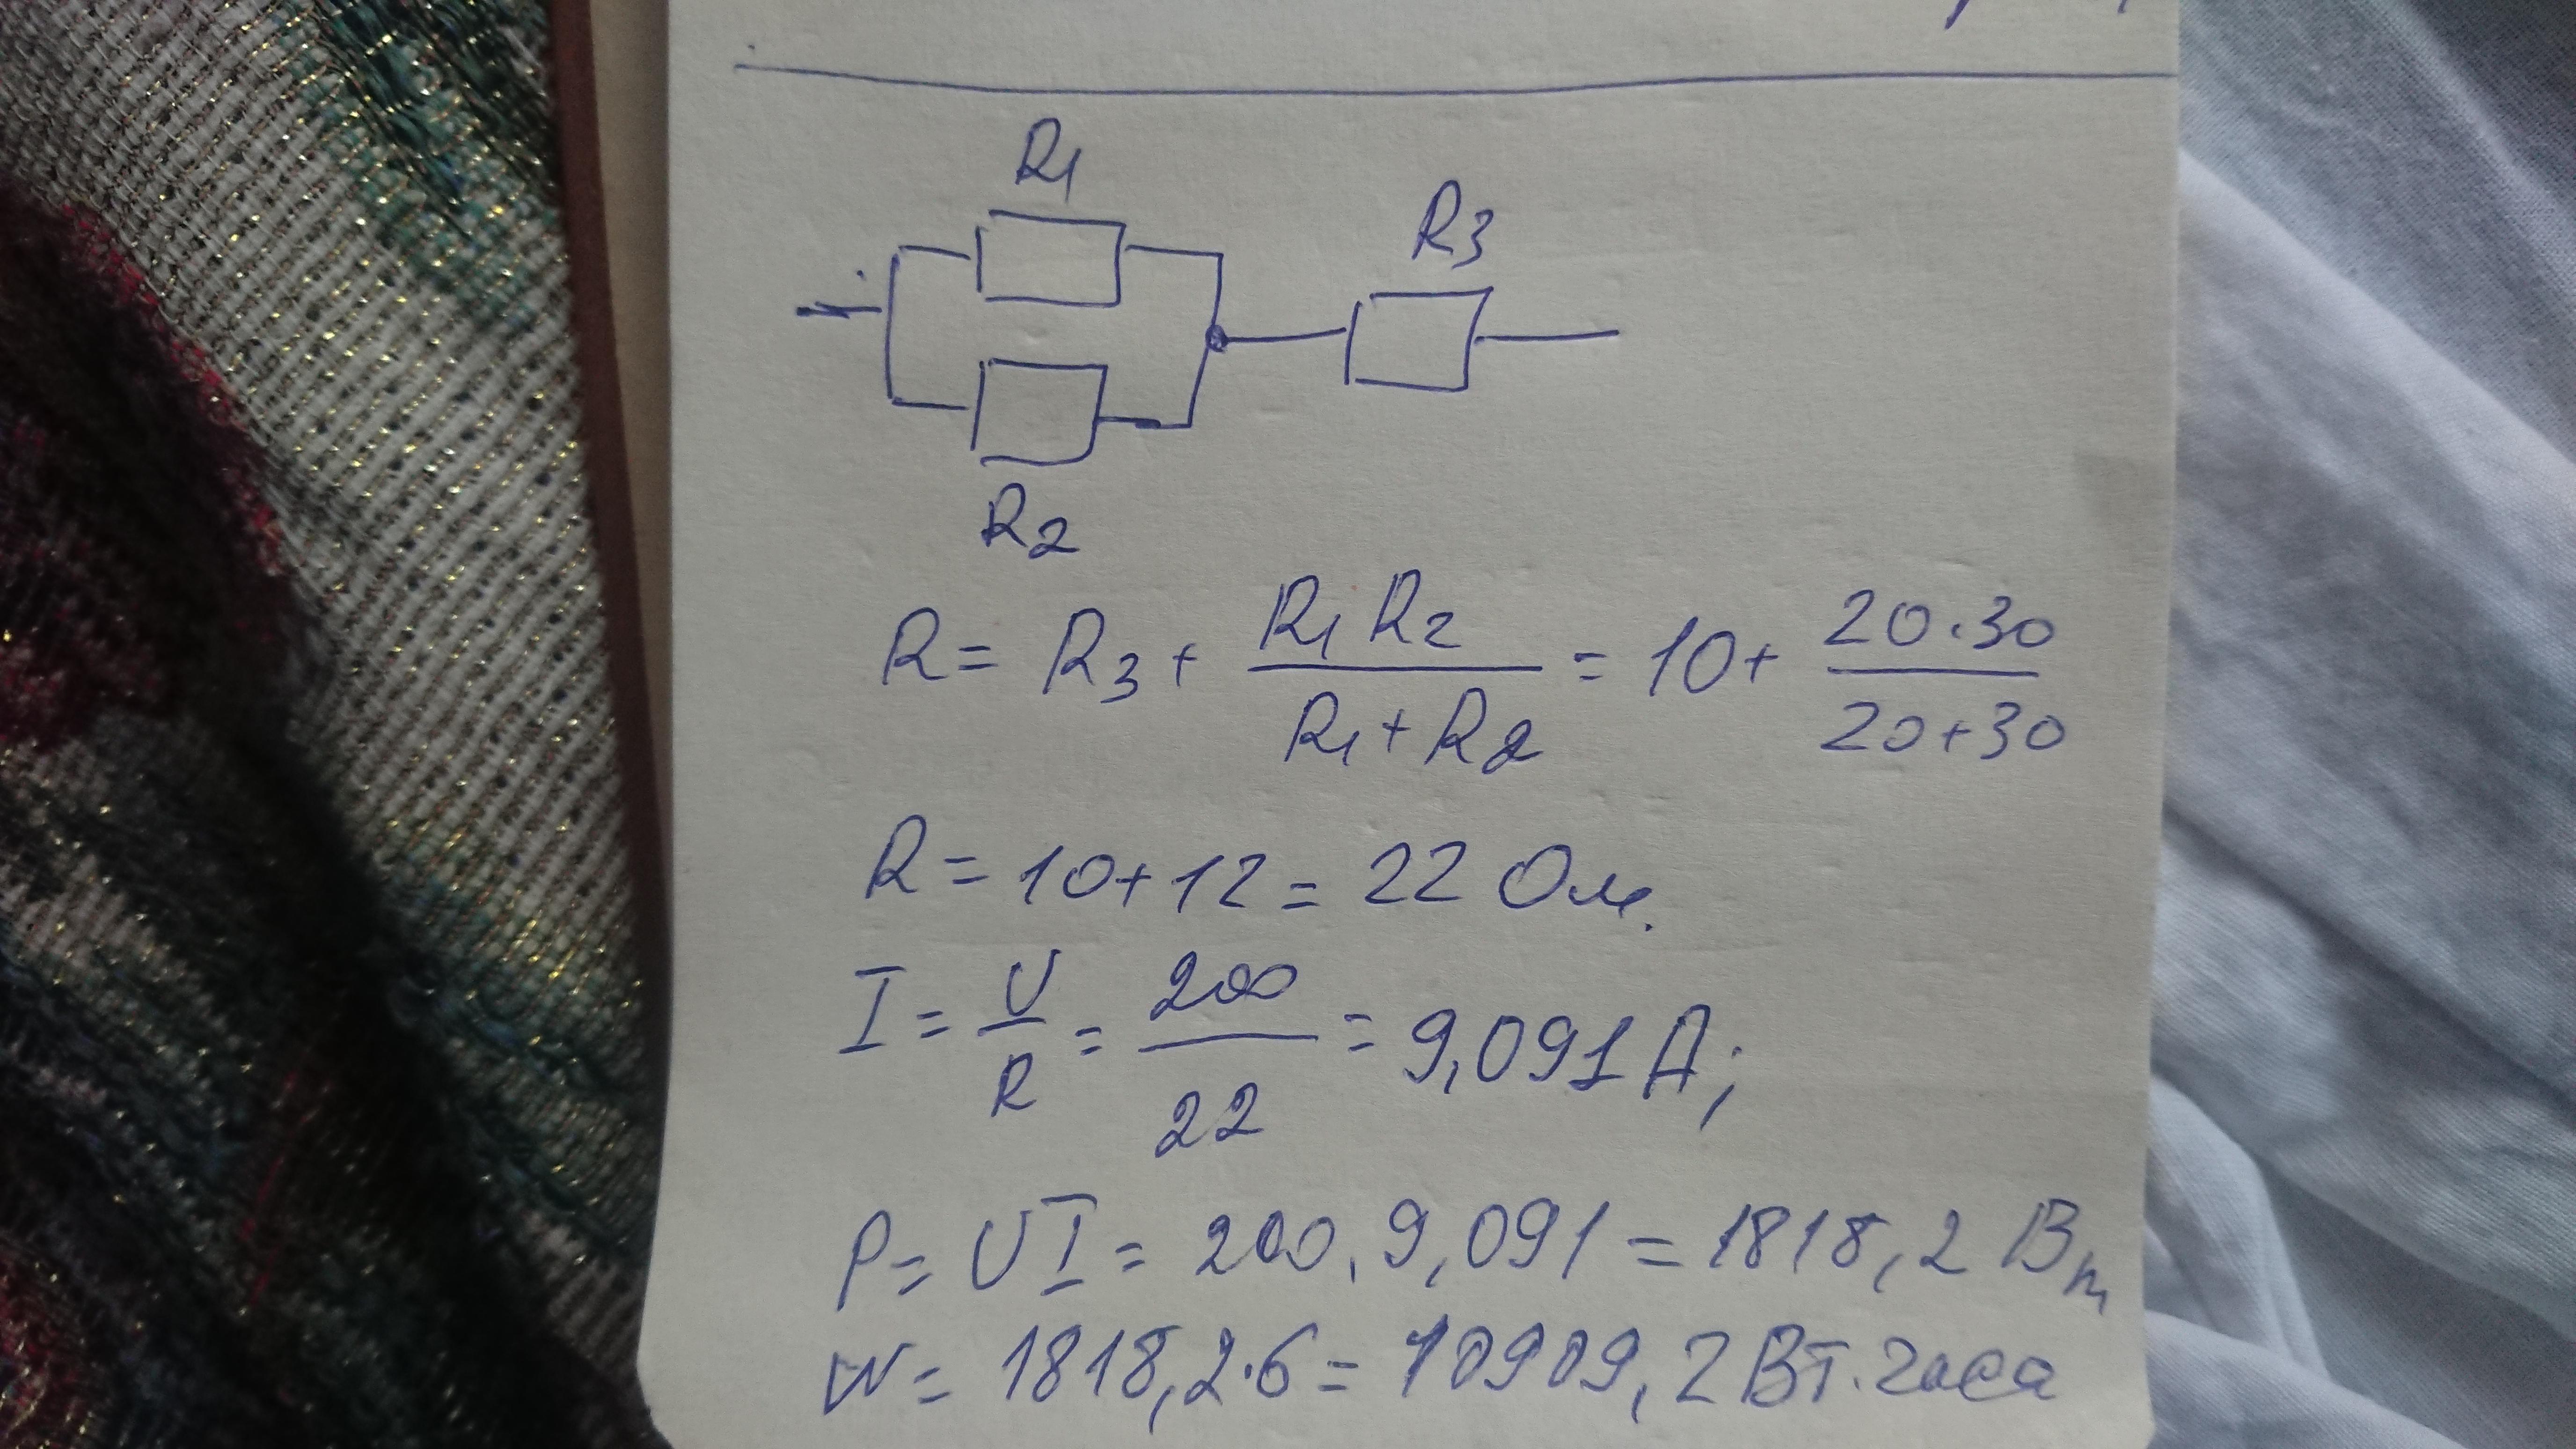 R1
R3
R2
R = R3 + R1 R2 / R1 + R2 = 10 + 20·30 / 20+30
R = 10+12 = 22 Ом.
I = U / R = 200 / 22 = 9,091 А;
P = UI = 200 . 9,091 = 1818,2 Вт
W = 1818,2·6 = 10909,2 Вт.часа